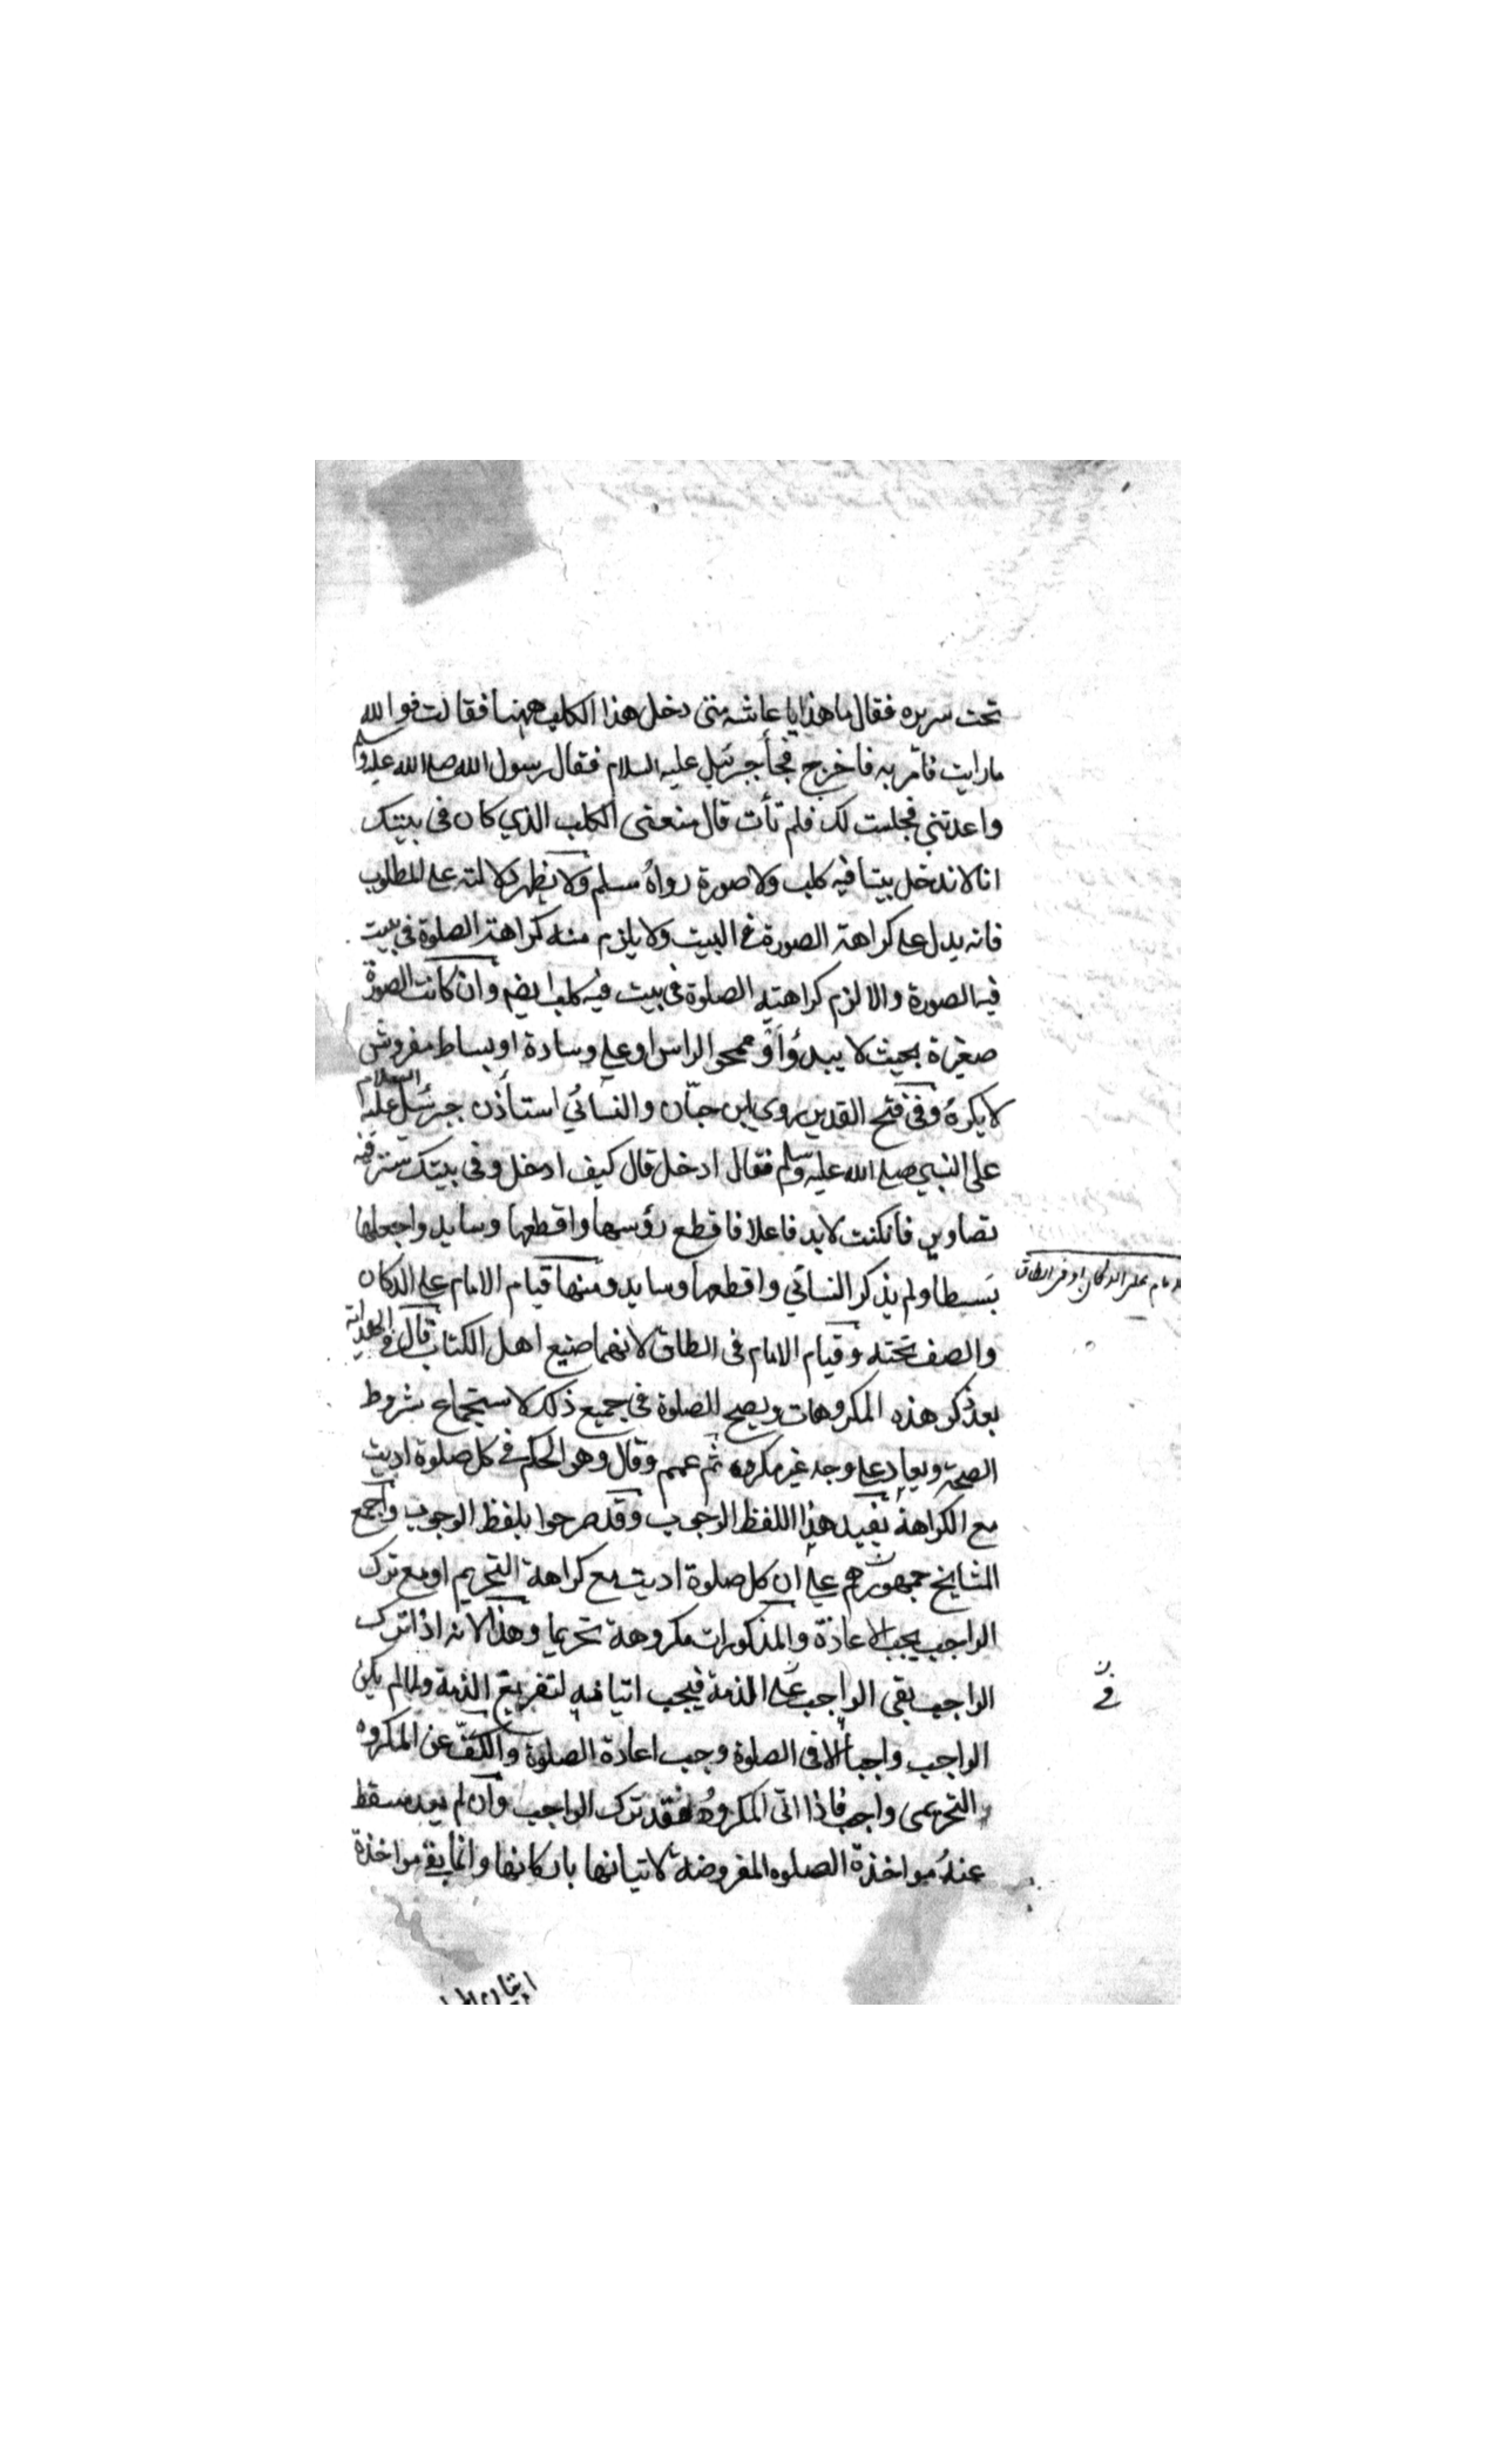 تحت سريره فقال ما هذا يا عائشة متى دخل هذا الكلب ههنا فقالت فوالله
ما رايت فامر به فاخرج فجأ جبرئيل عليه السلام فقال رسول الله صلى الله عليه وسلم
واعدتني فجلست لك فلم تأت قال منعنى الكلب الذي كان فى بيتك
انا لا ندخل بيتا فيه كلب ولا صورة رواه مسلم ولا يظهر دلالته على المطلوب
فانه يدل على كراهة الصورة في البيت ولا يلزم منه كراهة الصلوة فى بيت
فيه الصورة والا لزم كراهته الصلوة فى بيت فيه كلب ايضم وان كانت الصورة
صغيرة بحيث لا يبدؤ او ممحو الراس او على وسادة او بساط مفروش
لا يكره وفى فتح القدير روى ابن حبّان والنسائي استأذن جبرئيل عليه السلام
على النبي صلى الله عليه وسلم فقال ادخل قال كيف ادخل وفى بيتك ستر فيه
تصاوير فانكنت لا بد فاعلا فاقطع رؤسها واقطعها وسايد واجعلها
بسطا ولم يذكر النسائي واقطعها وسايد ومنها قيام الامام على الدكان
والصف تحته وقيام الامام فى الطاق لانهما صنيع اهل الكتاب قال في الهداية
بعد ذكر هذه المكروهات ويصح الصلوة في جميع ذلك لاستجماع شروط
الصحة ويعاد على وجه غير مكروه ثم عمم وقال وهو الحكم في كل صلوة اديت
مع الكراهة يفيد هذا اللفظ الوجوب وقد صرحوا بلفظ الوجوب واجمع
المشايخ جمهورهم على ان كل صلوة اديت مع كراهة التحريم او مع ترك
الواجب يجب الاعادة والمذكورات مكروهة تحريما وهذا لانه اذا ترك
الواجب بقى الواجب على الذمة فيجب اتيانه لتفريغ الذمة ولما لم يكن
الواجب واجبا الا فى الصلوة وجب اعادة الصلوة والكفّ عن المكروه
التحريمى واجب فاذا اتى المكروه فقد ترك الواجب وان لم يعد سقط
عنه مواخذة الصلوه المفروضة لاتيانها باركانها وانما بقى مواخذة
على الدكان او فى الطاق
ف